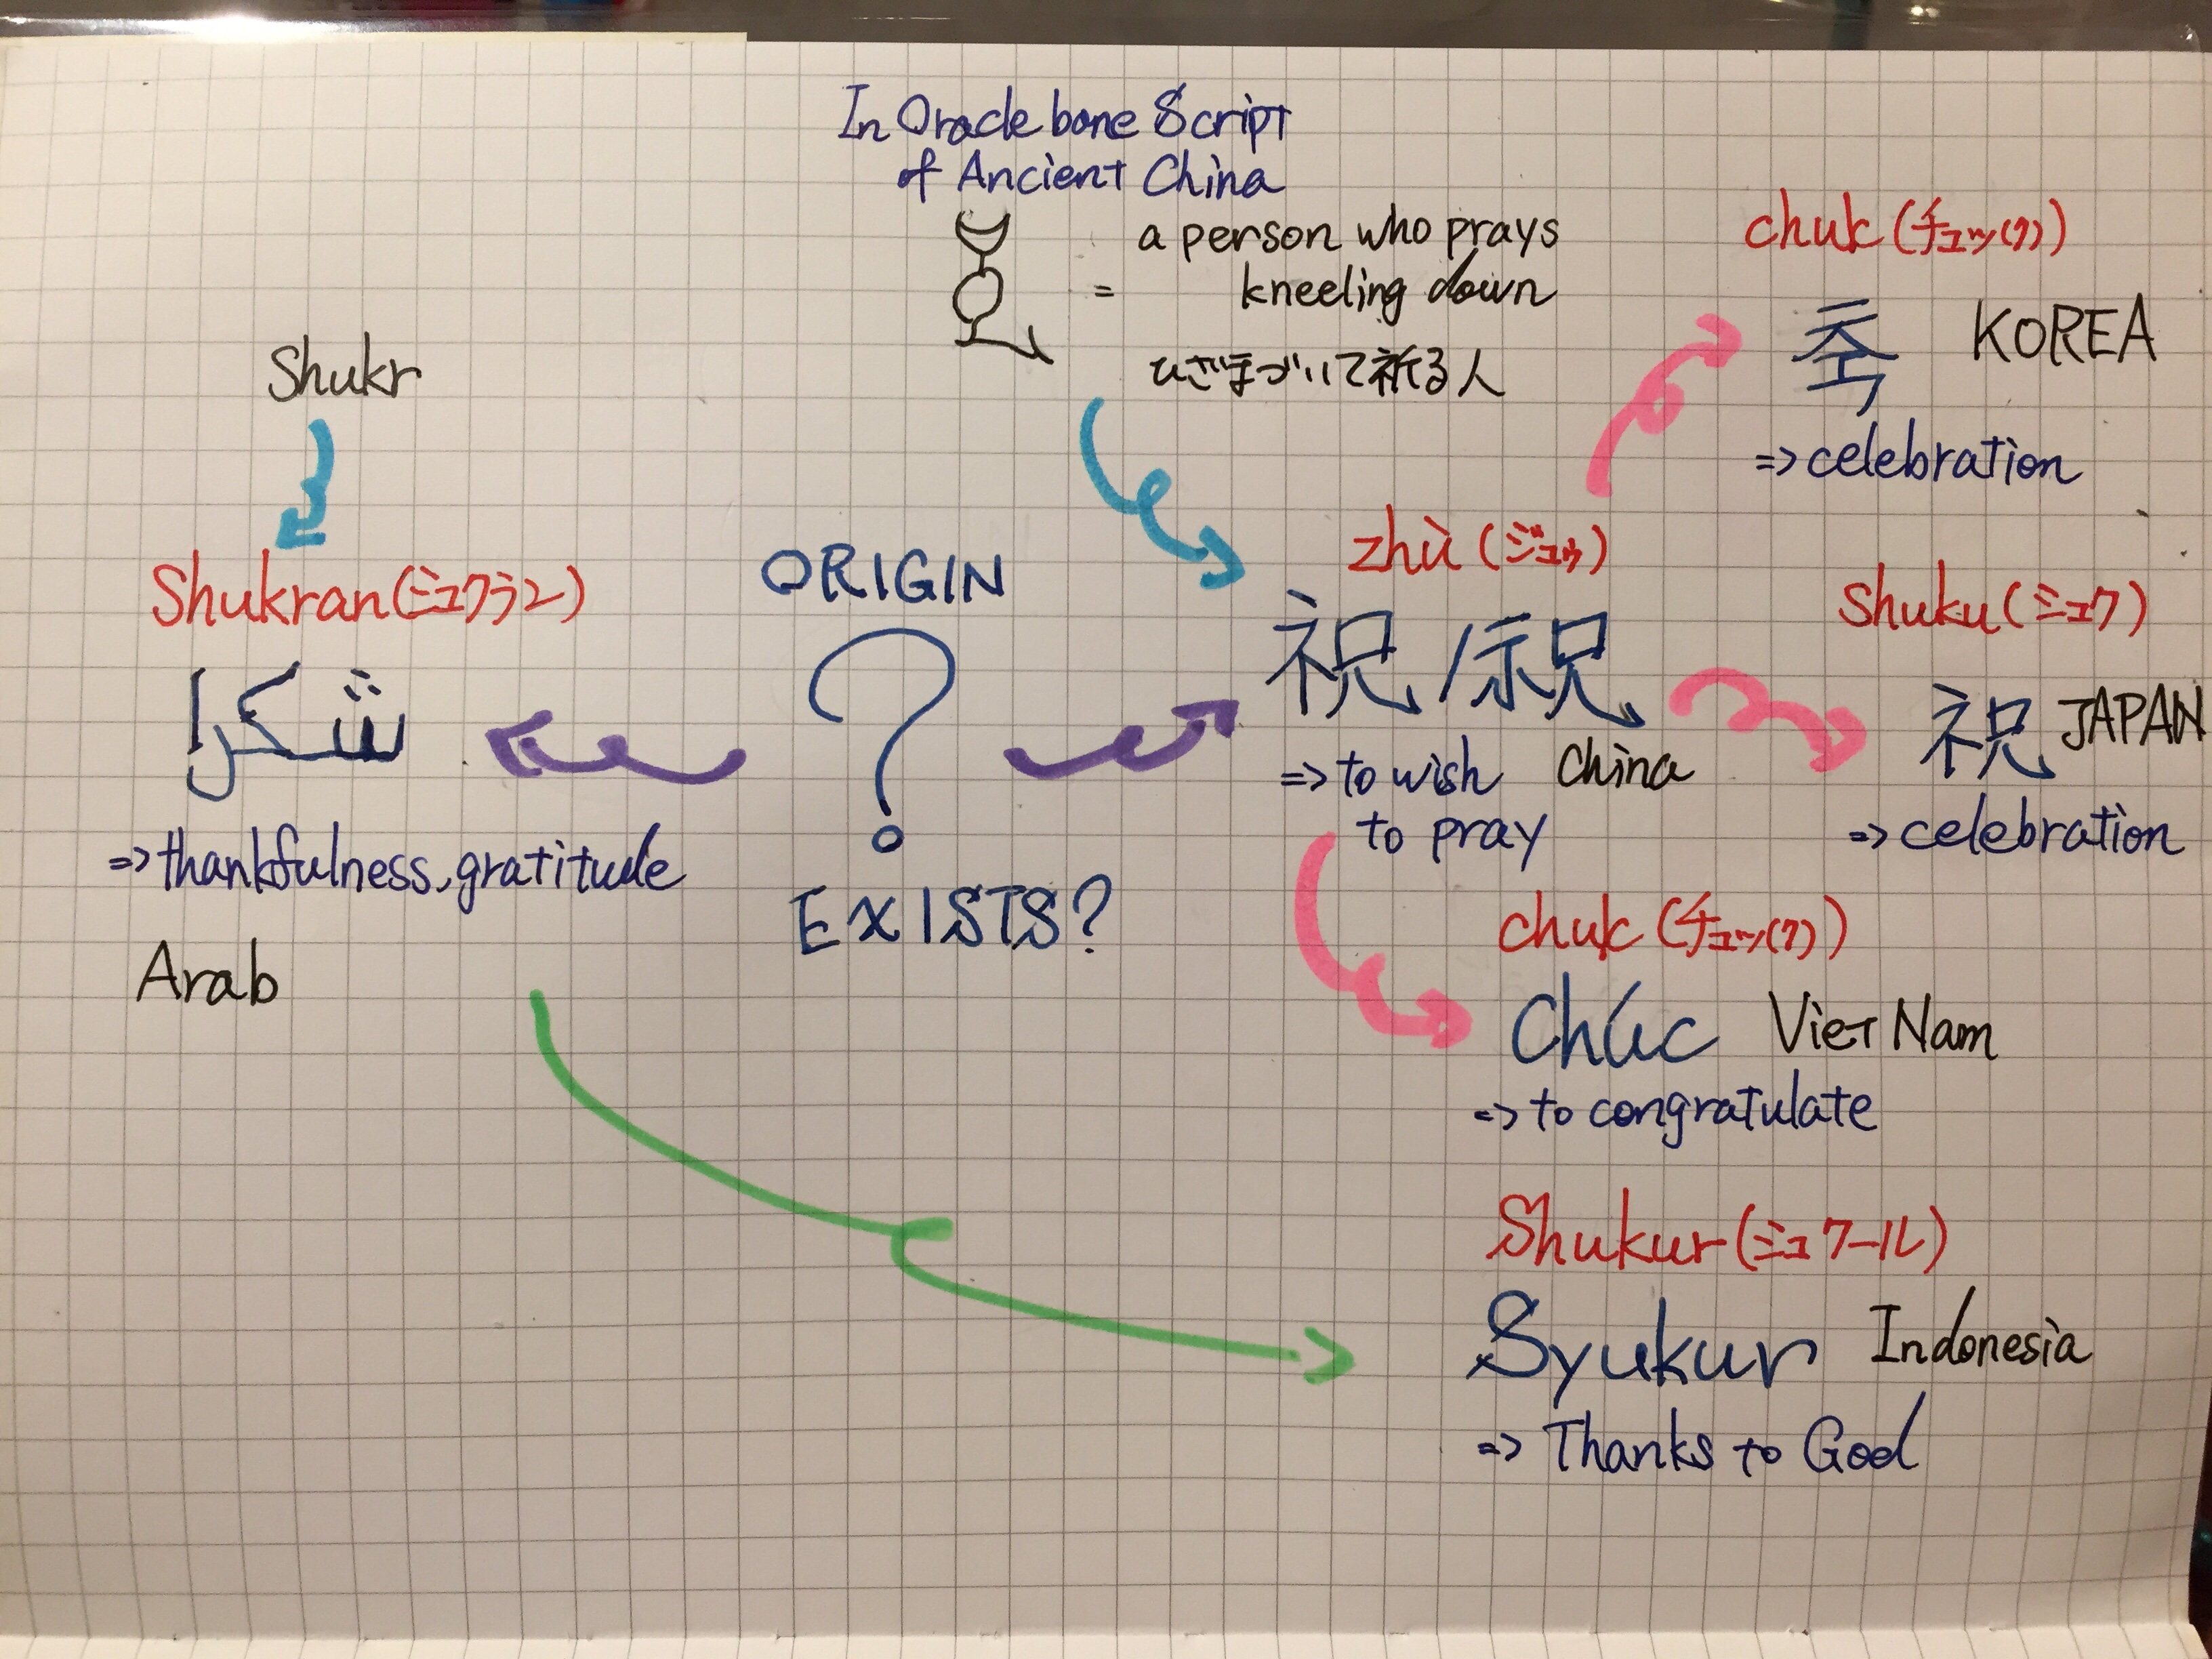 In Oracle bone Script
of Ancient China
= a person who prays
kneeling down
ひざまづいて祈る人
Shukr
Shukran (シュクラン)
شكرا
=> thankfulness, gratitude
Arab
ORIGIN
?
EXISTS?
zhù (ジュゥ)
祝/祝
=> to wish China
to pray
chuk (チュッ(ク))
축 KOREA
=> celebration
shuku (シュク)
祝 JAPAN
=> celebration
chuk (チュッ(ク))
Chúc Viet Nam
=> to congratulate
Shukur (シュクール)
Syukur Indonesia
=> Thanks to God